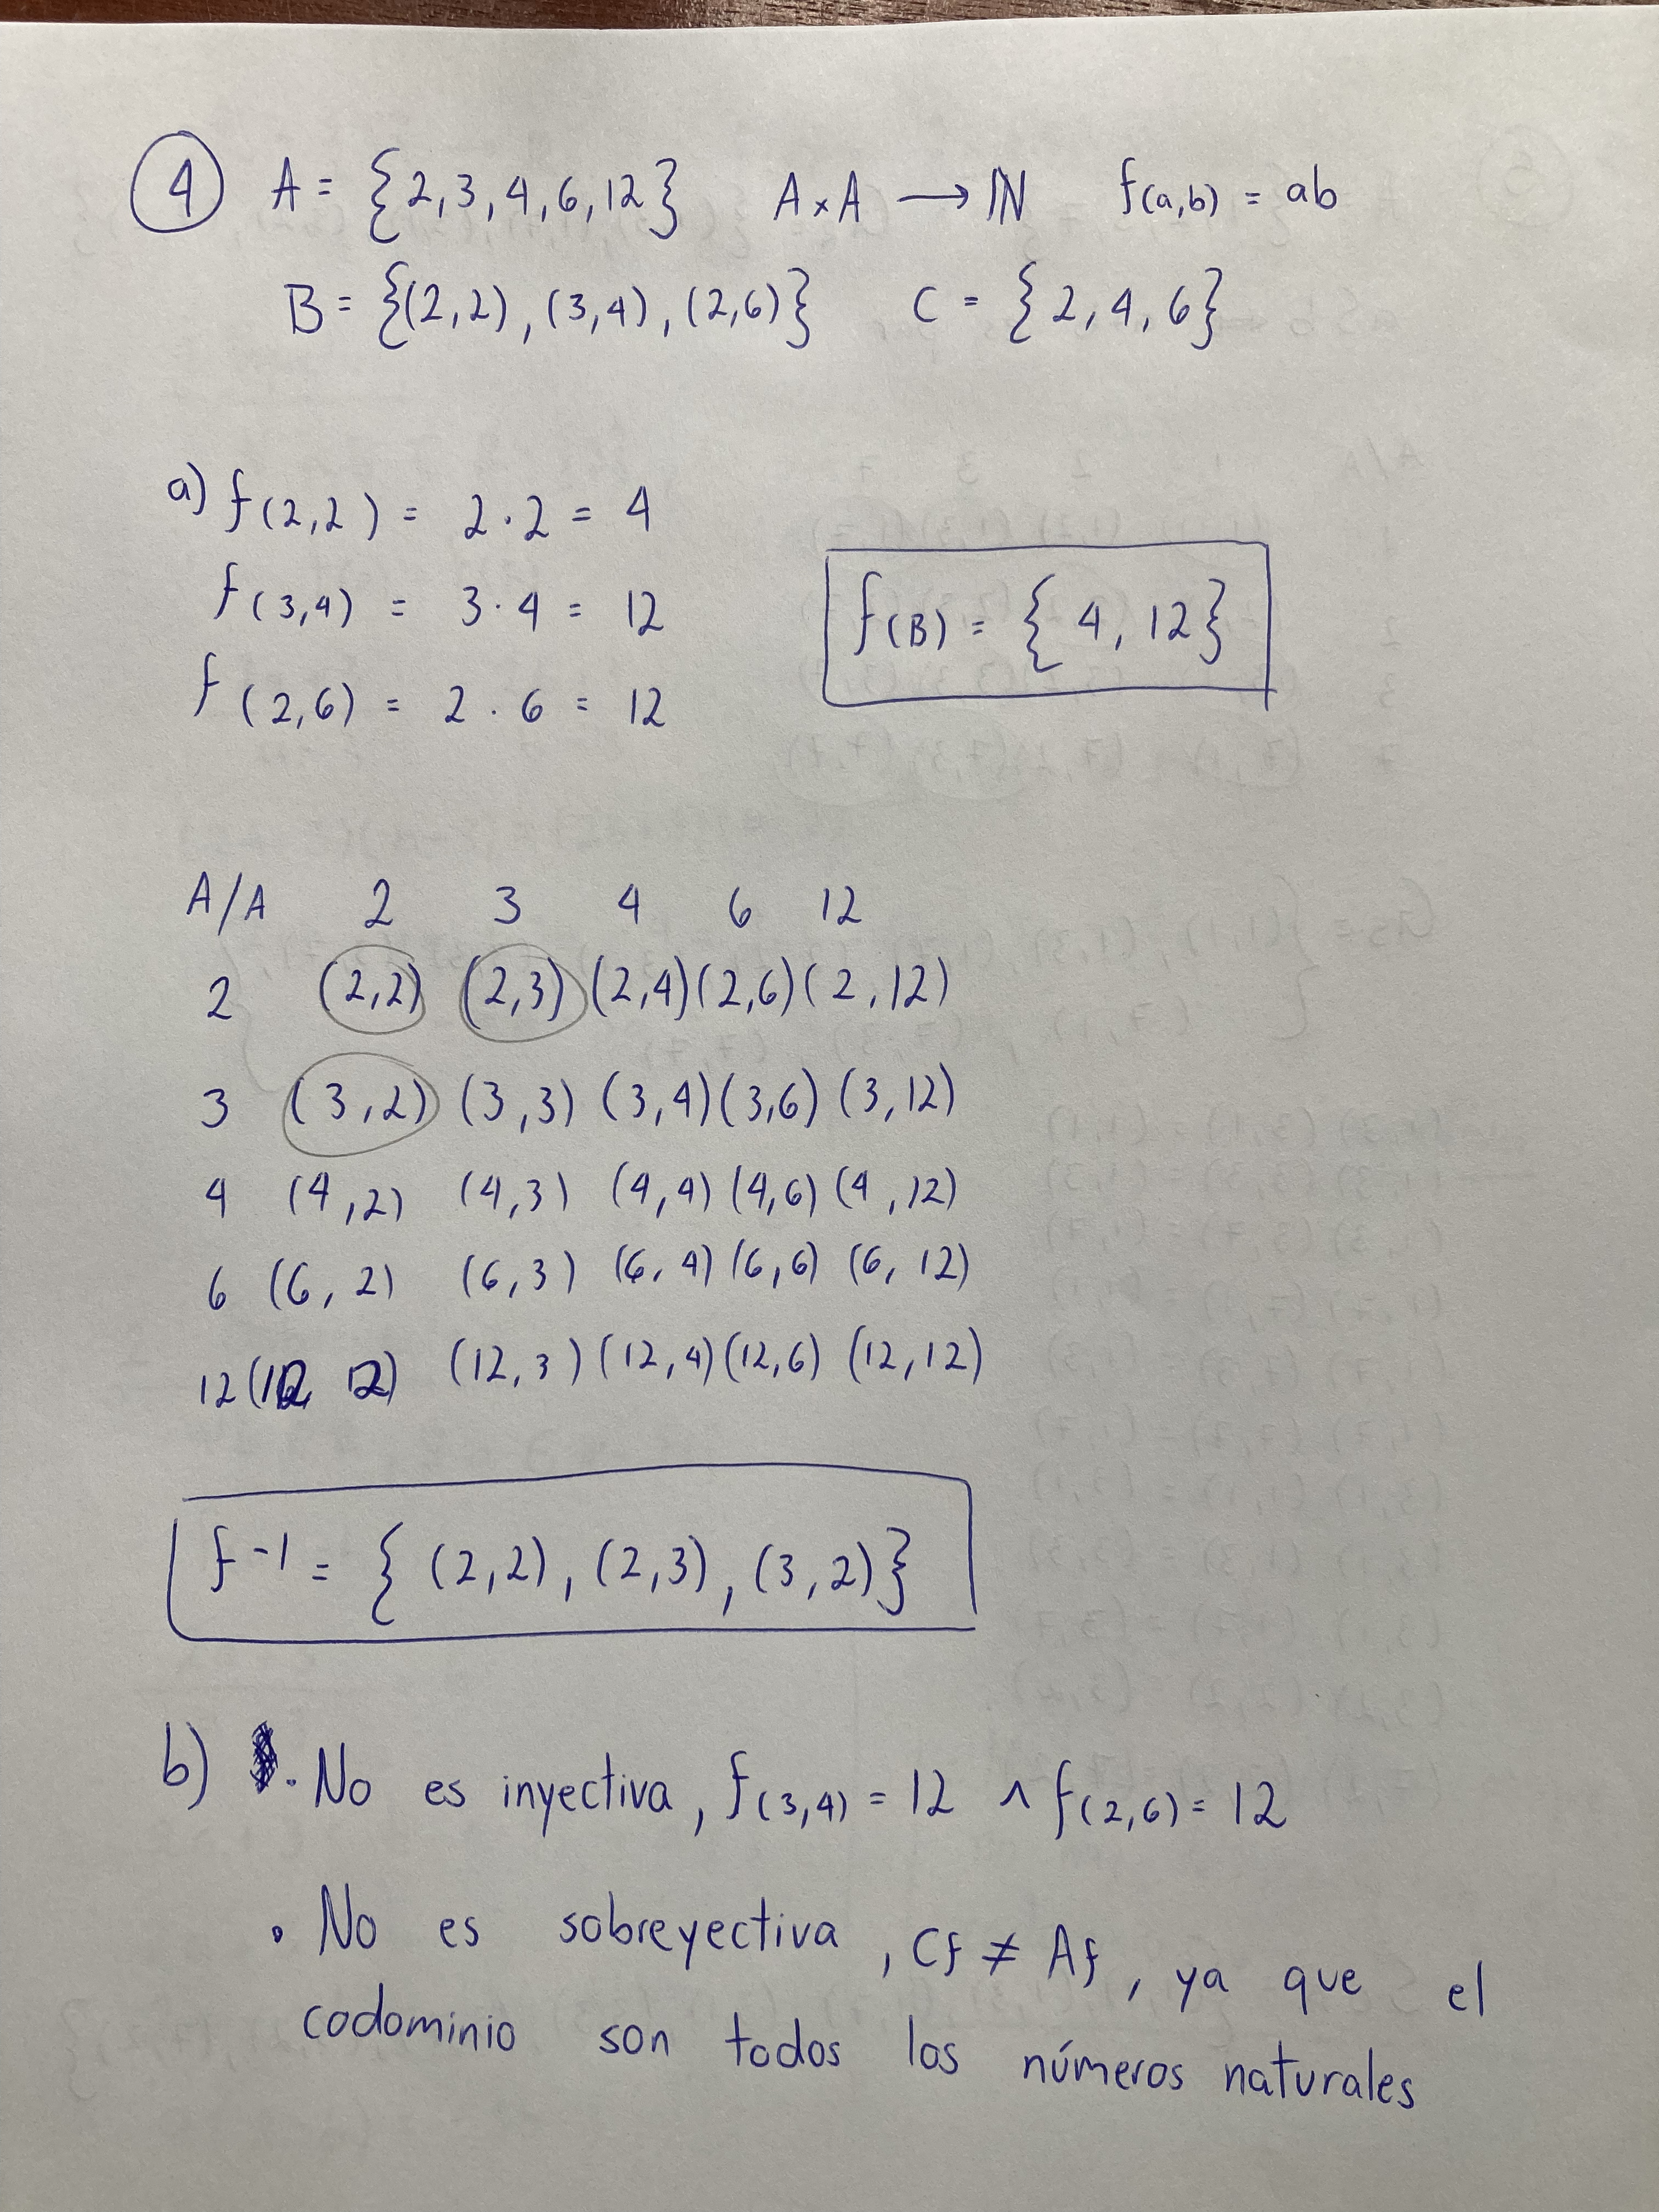 4 A = {2,3,4,6,12} A×A → ℕ f(a,b) = ab
B = {(2,2), (3,4), (2,6)} C = {2,4,6}
a) f(2,2) = 2·2 = 4
f(3,4) = 3·4 = 12
f(B) = {4,12}
f(2,6) = 2·6 = 12
A/A 2 3 4 6 12
2 (2,2) (2,3) (2,4) (2,6) (2,12)
3 (3,2) (3,3) (3,4) (3,6) (3,12)
4 (4,2) (4,3) (4,4) (4,6) (4,12)
6 (6,2) (6,3) (6,4) (6,6) (6,12)
12 (12, 12) (12,3) (12,4) (12,6) (12,12)
f⁻¹ = {(2,2), (2,3), (3,2)}
b) . No es inyectiva, f(3,4) = 12 ∧ f(2,6) = 12
. No es sobreyectiva, Cf ≠ Af, ya que el
codominio son todos los números naturales